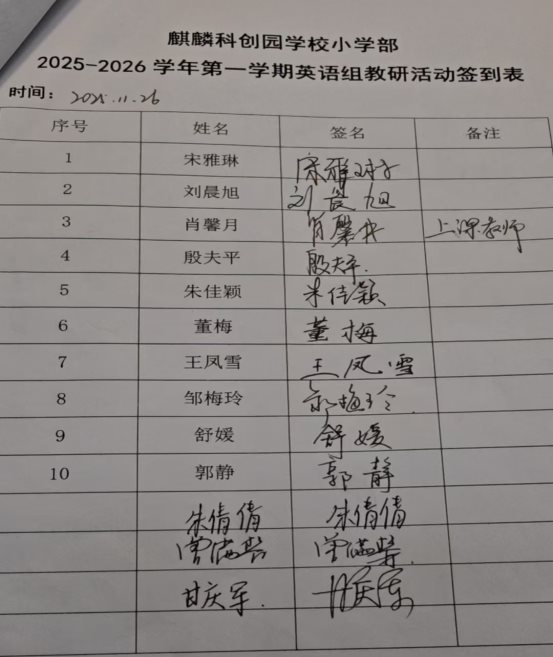 麒麟科创园学校小学部
2025-2026 学年第一学期英语组教研活动签到表
时间： 2025.11.26
序号 姓名 签名 备注
1 宋雅琳 宋雅琳
2 刘晨旭 刘晨旭
3 肖馨月 肖馨月 上课教师
4 殷夫平 殷夫平.
5 朱佳颖 朱佳颖
6 董梅 董梅
7 王凤雪 王凤雪
8 邹梅玲 邹梅玲
9 舒媛 舒媛
10 郭静 郭静
朱倩倩 朱倩倩
甘庆军. 甘庆军